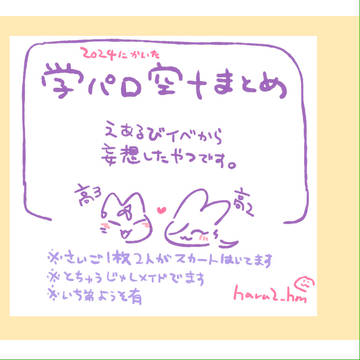 2024にかいた
学パロ空十まとめ
えあるびイベから
妄想したやつです。
高3
高2
※さいご1枚2人がスカートはいてます
※とちゅうじゃしメイドでます
※いち弟ようそ有
haru2_hm